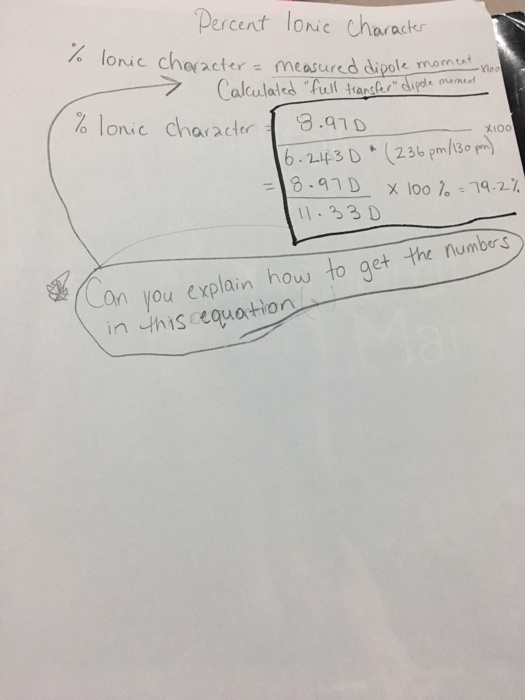 Percent Ionic Character
% Ionic character = measured dipole moment x100
Calculated "full transfer" dipole moment
% Ionic character = 8.97D x100
6.243D * (236 pm/130 pm)
= 8.97D x 100 % = 79.2%
11.33D
* Can you explain how to get the numbers
in this equation